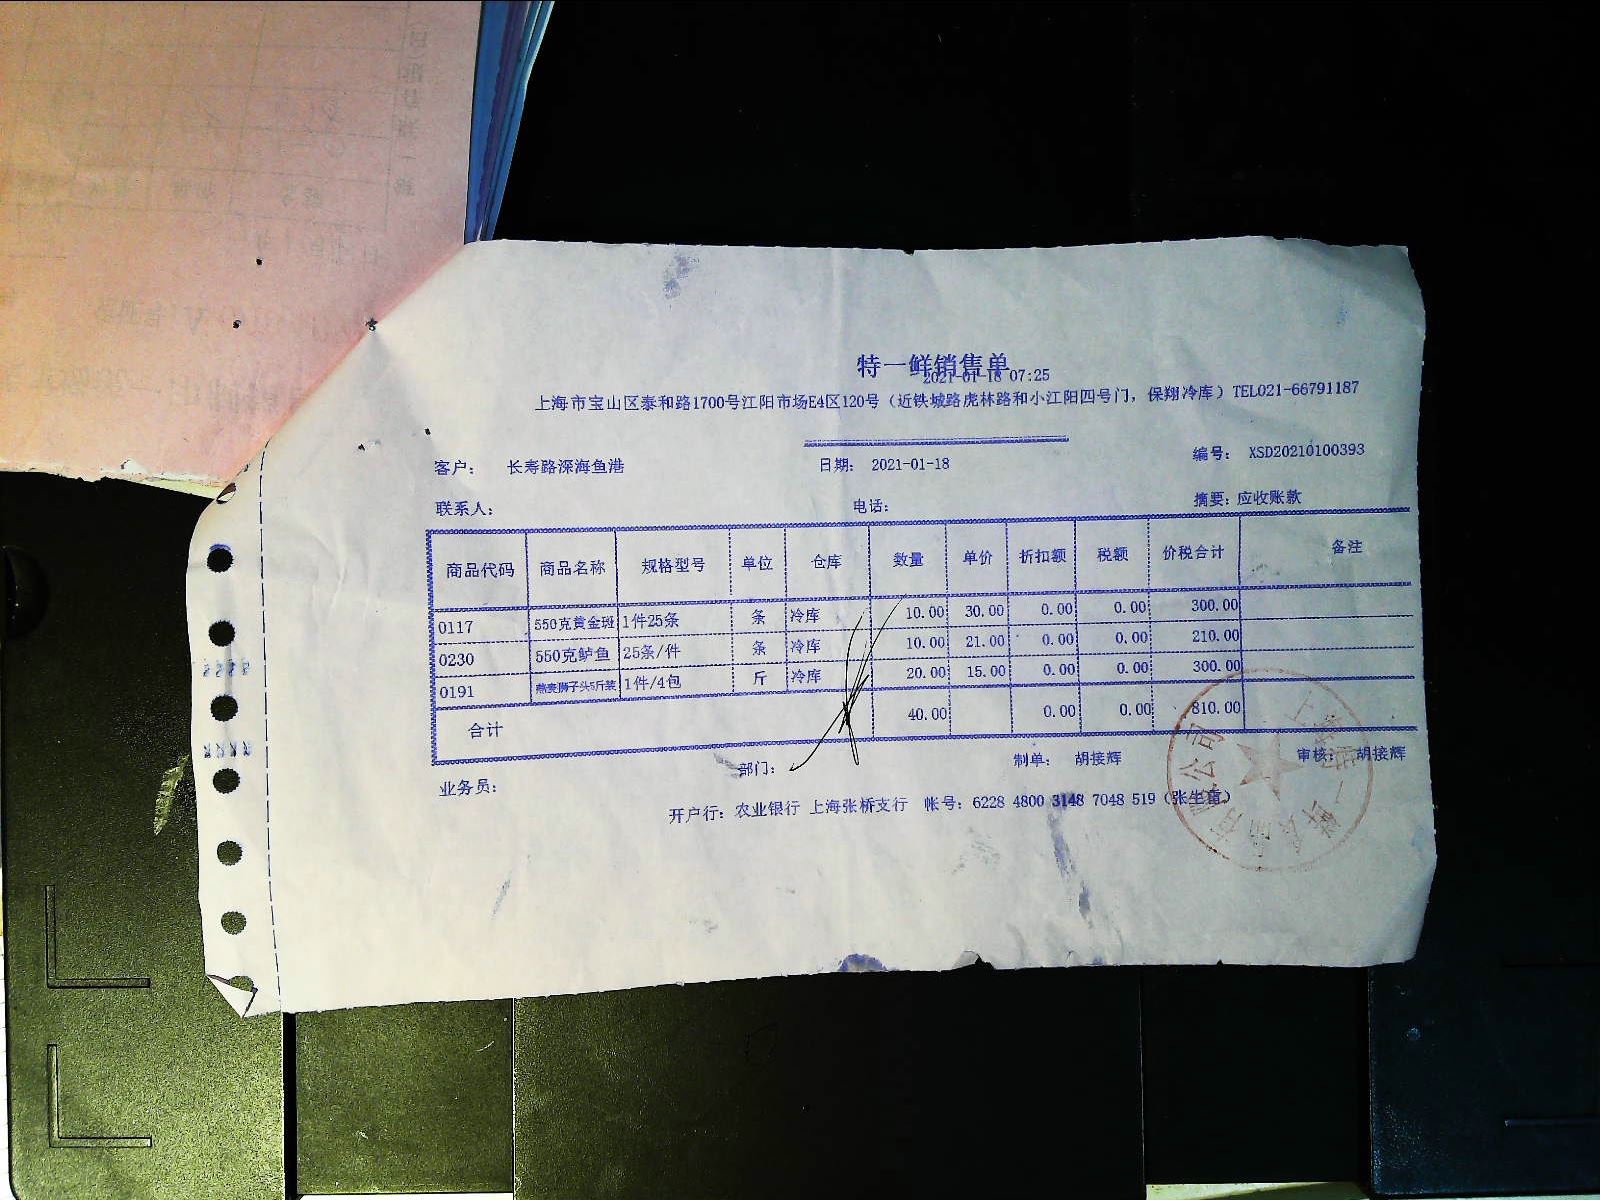 特一鲜销售单
2021-01-18 07:25
上海市宝山区泰和路1700号江阳市场E4区120号（近铁城路虎林路和小江阳四号门，保翔冷库）TEL021-66791187
客户： 长寿路深海鱼港 日期： 2021-01-18 编号： XSD20210100393
联系人： 电话： 摘要：应收账款
商品代码 商品名称 规格型号 单位 仓库 数量 单价 折扣额 税额 价税合计 备注
0117 550克黄金斑 1件25条 条 冷库 10.00 30.00 0.00 0.00 300.00
0230 550克鲈鱼 25条/件 条 冷库 10.00 21.00 0.00 0.00 210.00
0191 燕麦狮子头5斤装 1件/4包 斤 冷库 20.00 15.00 0.00 0.00 300.00
合计 40.00 0.00 0.00 810.00
业务员： 部门： 制单： 胡接辉 审核： 胡接辉
开户行：农业银行 上海张桥支行 帐号：6228 4800 3148 7048 519（张生富）